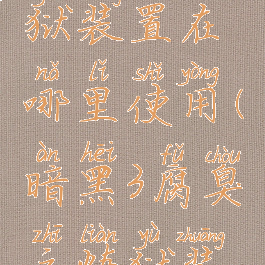 狱装置在
nǎ lǐ shǐ yòng
哪里使用(
àn hēi fǔ chòu
暗黑3腐臭
zhī liàn yù zhuāng
之炼狱装